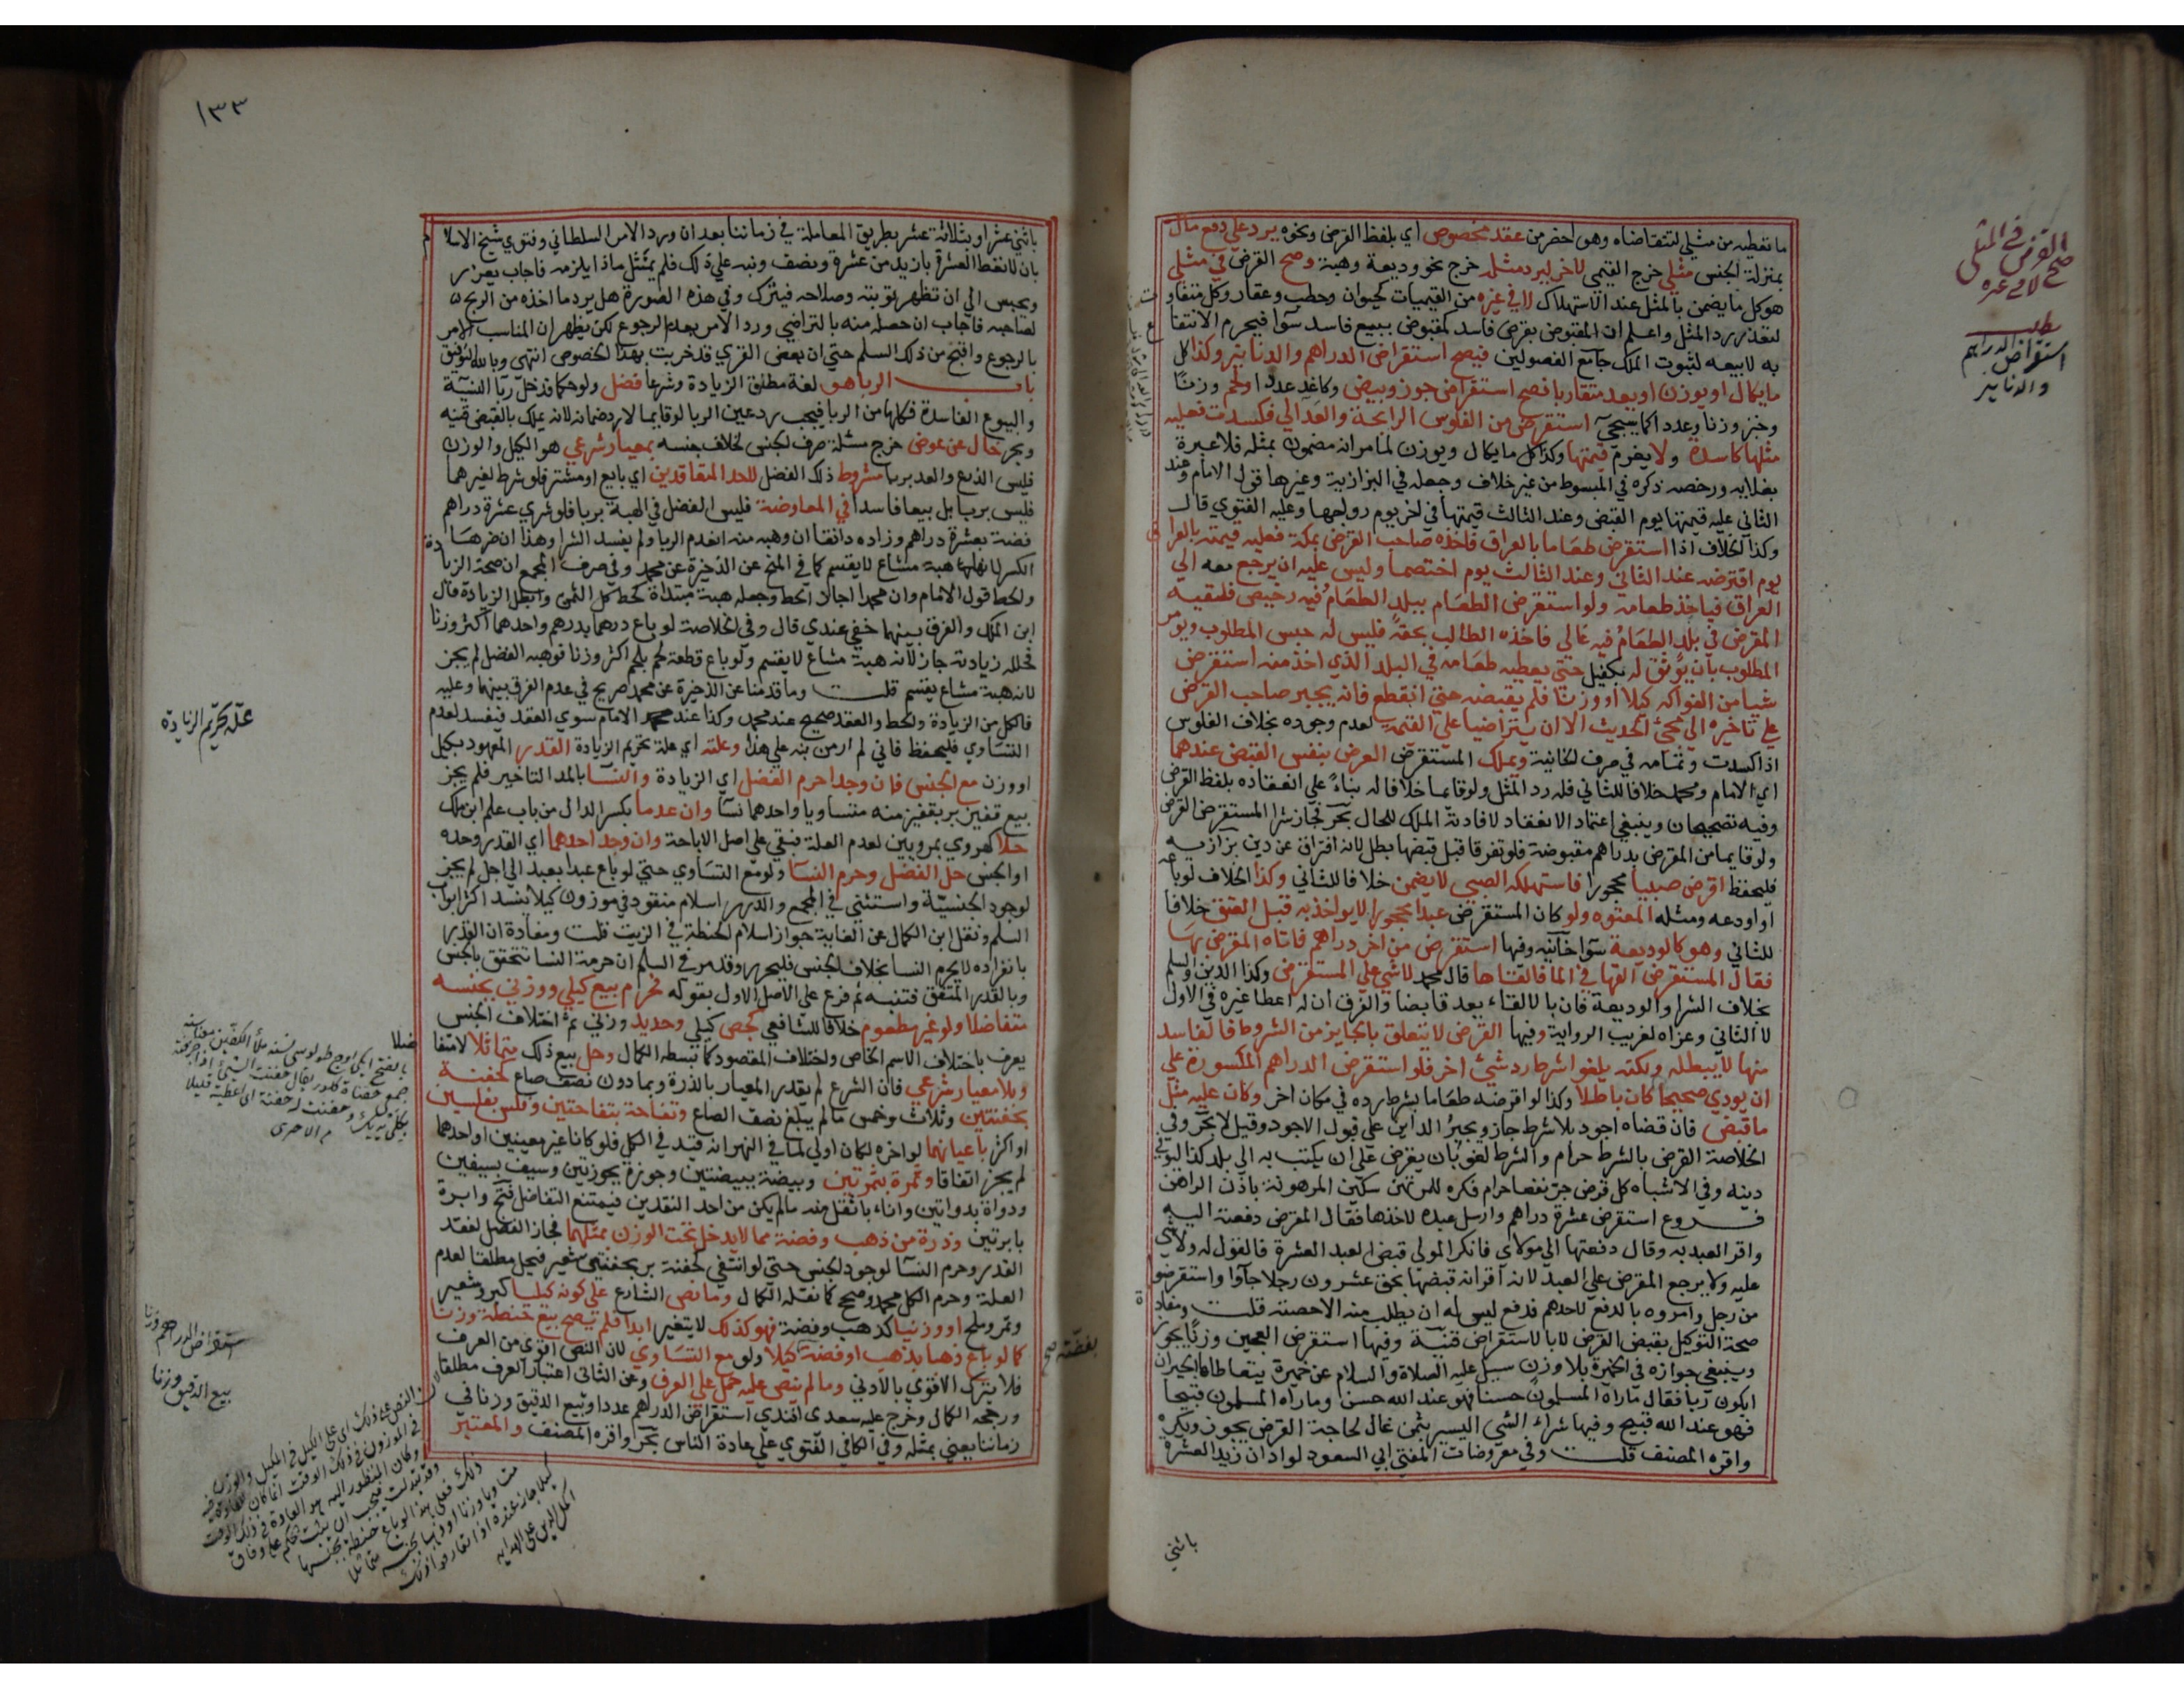 ما تعطيه من مثلي لتتقاضاه وهو اخصر من عقد مخصوص اي بلفظ القرض ونحوه يرد علي دفع مال
بمنزلة الجنس مثلي خرج القيمي لاخر ليرد مثله خرج نحو وديعة وهبة وصح القرض في مثلي
هو كل ما يضمن بالمثل عند الاستهلاك لا في غيره من القيميات كحيوان وحطب وعقار وكل متفاوت
لتعذر رد المثل واعلم ان المقبوض بقرض فاسد كمقبوض ببيع فاسد سوآ فيحرم الانتفاع
به لا بيعه لثبوت الملك جامع الفصولين فيصح استقراض الدراهم والدنانير وكذا كل
ما يكال او يوزن او يعد متقاربا فصح استقراض جوز وبيض وكاغد عددا ولحم وزنًا
وخبز وزنا وعددا كما سيجيٓ استقرض من الفلوس الرايجة والعدالي فكسدت فعليه
مثلها كاسدة ولا يغرم قيمتها وكذا كل ما يكال ويوزن لما مر انه مضمون بمثله فلا عبرة
بغلايه ورخصه ذكره في المبسوط من غير خلاف وجعله في البزازية وغيرها قول الامام وعند
الثاني عليه قيمتها يوم القبض وعند الثالث قيمتها في اخر يوم رواجها وعليه الفتوي قال
وكذا الخلاف اذا استقرض طعاما بالعراق فاخذه صاحب القرض بمكة فعليه قيمته بالعراق
يوم اقترضه عند الثاني وعند الثالث يوم اختصما وليس عليه ان يرجع معه الي
العراق فياخذ طعامه ولو استقرض الطعام ببلد الطعامُ فيه رخيص فلقيه
المقرض في بلد الطعامُ فيه غالي فاخذه الطالب بحقه فليس له حبس المطلوب ويومر
المطلوب بان يوثق له بكفيل حتي يعطيه طعامه في البلد الذي اخذ منه استقرض
شيا من الفواكه كيلا او وزنا فلم يقبضه حتي انقطع فانه يجبر صاحب القرض
علي تاخيره الي مجئ الحديث الا ان يتراضيا علي القيمة لعدم وجوده بخلاف الفلوس
اذا كسدت وتمامه في صرف الخانية ويملك المستقرض القرض بنفس القبض عندهما
اي الامام ومحمد خلافا للثاني فله رد المثل ولو قايما خلافا له بناءً علي انعقاده بلفظ القرض
وفيه تصحيحان وينبغي اعتماد الانعقاد لافادته الملك للحال بحر فجاز شرا المستقرض القرض
ولو قايما من المقرض بدراهم مقبوضة فلو تفرقا قبل قبضها بطل لانه افتراق عن دين بزازيه
فليحفظ اقرض صبيا محجورا فاستهلكه الصبي لا يضمن خلافا للثاني وكذا الخلاف لو باعه
او اودعه ومثله المعتوه ولو كان المستقرض عبدا محجورا لا يواخذ به قبل العتق خلافا
للثاني وهو كالوديعة سوآ خانيه وفيها استقرض من اخر دراهم فاتاه المقرض بها
فقال المستقرض القها في الما فالقاها قال محمد لا شي علي المستقرض وكذا الدين والسلم
بخلاف الشرا والوديعة فان بالالقاء يعد قابضا والفرق ان له اعطا غيره في الاول
لا الثاني وعزاه لغريب الرواية وفيها القرض لا يتعلق بالجايز من الشروط فالفاسد
منها لا يبطله ولكنه يلغو اشرط رد شئ اخر فلو استقرض الدراهم المكسورة علي
ان يودي صحيحا كان باطلا وكذا لو اقرضه طعاما بشرط رده في مكان اخر وكان عليه مثل
ما قبض فان قضاه اجود بلا شرط جاز ويجبرُ الداين علي قبول الاجود وقيل لا بحر وفي
الخلاصة القرض بالشرط حرام والشرط لغو بان يقرض علي ان يكتب به الي بلد كذا ليوفي
دينه وفي الاشباه كل قرض جر نفعا حرام فكره للمرتهن سكني المرهونة باذن الراهن
فروع استقرض عشرة دراهم وارسل عبده لاخذها فقال المقرض دفعته اليه
واقر العبد به وقال دفعتها الي مولاي فانكر المولي قبض العبد العشرة فالقول له ولا شي
عليه ولا يرجع المقرض علي العبد لانه اقر انه قبضها بحق عشرون رجلا جاوا واستقرضوا
من رجل وامروه بالدفع لاحدهم فدفع ليس له ان يطلب منه الا حصته قلت ومفاده
صحة التوكيل بقبض القرض لا بالاستقراض قنية وفيها استقرض العجين وزنا يجوز
وينبغي جوازه في الخميرة بلا وزن سيل عليه الصلاة والسلام عن خميرة يتعاطاها الجيران
ايكون ربا فقال ما راه المسلمون حسنا فهو عند الله حسن وما راه المسلمون قبيحا
فهو عند الله قبيح وفيها شراء الشي اليسير بثمن غال لحاجة القرض يجوز ويكره
واقره المصنف قلت وفي معروضات المفتي ابي السعود لو ادان زيد العشرة
باثني
القرض في المثلي
صح لا في غيره
مطلب
استقراض الدراهم
والدنانير
١٣٣
باثني عشر او بثلاثة عشر بطريق المعاملة في زماننا بعد ان ورد الامر السلطاني وفتوي شيخ الاسلام
بان لا تعطا العشرة بازيد من عشرة ونصف ونبه علي ذلك فلم يمتثل ماذا يلزمه فاجاب يعزر
ويحبس الي ان تظهر توبته وصلاحه فيترك وفي هذه الصورة هل يرد ما اخذه من الربح
لصاحبه فاجاب ان حصله منه بالتراضي ورد الامر بعدم الرجوع لكن يظهر ان المناسب الامر
بالرجوع واقبح من ذلك السلم حتي ان بعض القري قد خربت بهذا الخصوص انتهي وبالله التوفيق
باب الربا هو لغة مطلق الزيادة وشرعا فضل ولو حكما فدخل ربا النسية
والبيوع الفاسدة فكلها من الربا فيجب رد عين الربا لو قايما لا رد ضمانه لانه يملك بالقبض قنيه
وبحر خال عن عوض خرج مسئلة صرف الجنس بخلاف جنسه بمعيار شرعي هو الكيل والوزن
فليس الذرع والعد بربا مشروط ذلك الفضل لاحد المتعاقدين اي بايع او مشتر فلو شرط لغيرهما
فليس بربا بل بيعا فاسدا في المعاوضة فليس الفضل في الهبة بربا فلو شري عشرة دراهم
فضة بعشرة دراهم وزاده دانقا ان وهبه منه انعدم الربا ولم يفسد الشرا وهذا ان ضرها
الكسر لانها هبة مشاع لا يقسم كما في المنح عن الذخيرة عن محمد وفي صرف المجمع ان صحة الزيادة
والحط قول الامام وان محمدا اجاز الحط وجعله هبة مبتداة كحط كل الثمن وابطل الزيادة قال
ابن الملك والفرق بينهما خفي عندي قال وفي الخلاصة لو باع درهما بدرهم واحدهما اكثر وزنا
فحلله زيادته جاز لانه هبة مشاع لا يقسم ولو باع قطعة لحم بلحم اكثر وزنا فوهبه الفضل لم يجز
لانه هبة مشاع يقسم قلت وما قدمنا عن الذخيرة عن محمد صريح في عدم الفرق بينهما وعليه
فالكل من الزيادة والحط والعقد صحيح عند محمد وكذا عند الامام سوي العقد فيفسد لعدم
التساوي فليحفظ فاني لم ار من نبه علي هذا وعلته اي علة تحريم الزيادة القدر المعهود بكيل
او وزن مع الجنس فان وجدا حرم الفضل اي الزيادة والنسا بالمد التاخير فلم يجز
بيع قفيز بر بقفيز منه متساويا واحدهما نسآ وان عدما بكسر الدال من باب علم ابن ملك
حلا كهروي بمرويين لعدم العلة فبقي علي اصل الاباحة وان وجد احدهما اي القدر وحده
او الجنس حل الفضل وحرم النسآ ولو مع التساوي حتي لو باع عبدا بعبد الي اجل لم يجز
لوجود الجنسية واستثني في المجمع والدرر اسلام منقود في موزون كيلا ينسد اكثر ابواب
السلم ونقل ابن الكمال عن الغاية جواز اسلام الحنطة في الزيت قلت ومفاده ان القدر
بانفراده لا يحرم النسا بخلاف الجنس فليحرر وقد مر في السلم ان حرمة النسا تتحقق بالجنس
وبالقدر المتفق فتنبه ثم فرع علي الاصل الاول بقوله فحرم بيع كيلي ووزني بجنسه
متفاضلا ولو غير مطعوم خلافا للشافعي كجص كيلي وحديد وزني ثم اختلاف الجنس
يعرف باختلاف الاسم الخاص واختلاف المقصود كما بسطه الكمال وحل بيع ذلك متماثلا لا متفاضلا
وبلا معيار شرعي فان الشرع لم يقدر المعيار بالذرة وبما دون نصف صاع كحفنة
بحفنتين وثلاث وخمس ما لم يبلغ نصف الصاع وتفاحة بتفاحتين وفلس بفلسين
او اكثر باعيانهما لو اخره لكان اولي لما في النهر انه قيد في الكل فلو كانا غير معينين او احدهما
لم يجز اتفاقا وتمرة بتمرتين وبيضة ببيضتين وجوزة بجوزتين وسيف بسيفين
ودواة بدواتين واناء باثقل منه ما لم يكن من احد النقدين فيمتنع التفاضل فتح وابرة
بابرتين وذرة من ذهب وفضة مما لا يدخل تحت الوزن بمثليهما فجاز الفضل لفقد
القدر وحرم النسآ لوجود الجنس حتي لو انتفي كحفنة بر بحفنتي شعير فيحل مطلقا لعدم
العلة وحرم الكل محمد وصحح كما نقله الكمال وما نص الشارع علي كونه كيليا كبر وشعير
وتمر وملح او وزنيا كذهب وفضة فهو كذلك لا يتغير ابدا فلم يصح بيع حنطة بحنطة وزنا
كما لو باع ذهبا بذهب او فضة بفضة كيلا ولو مع التساوي لان النص اقوي من العرف
فلا يترك الاقوي بالادني وما لم ينص عليه حمل علي العرف وعن الثاني اعتبار العرف مطلقا
ورجحه الكمال وخرج عليه سعدي افندي استقراض الدراهم عددا وبيع الدقيق وزنا في
زماننا يعني بمثله وفي الكافي الفتوي علي عادة الناس بحر واقره المصنف والمعتبر
علة تحريم الزيادة
بفضة صح
استقراض الدراهم وزنا
بيع الدقيق وزنا